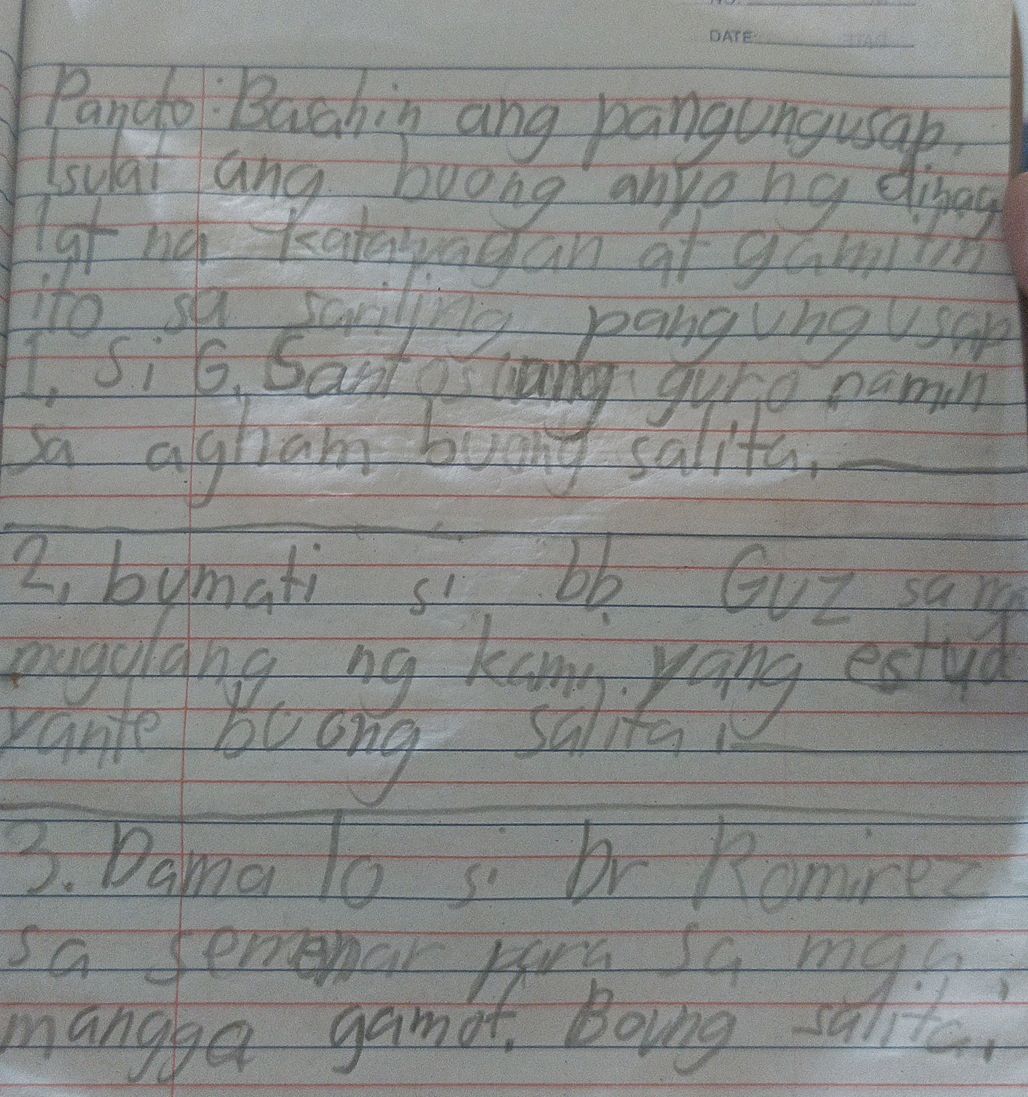 NO.
DATE:
Pancto: Basahin ang pangungusap.
Isulat ang buong anyo ng dinag
lat na katawagan at gamitin
ito sa sariling pangungusap
1. Si G. Santos ang guro namin
sa agham buong salita.
2. bumati si bb. Guz sa mga
magulang ng kaming yang estud
yante buong salita.
3. Dama lo si Dr Romirez
sa semenar para sa mga
mangga gamot. Boung salita.